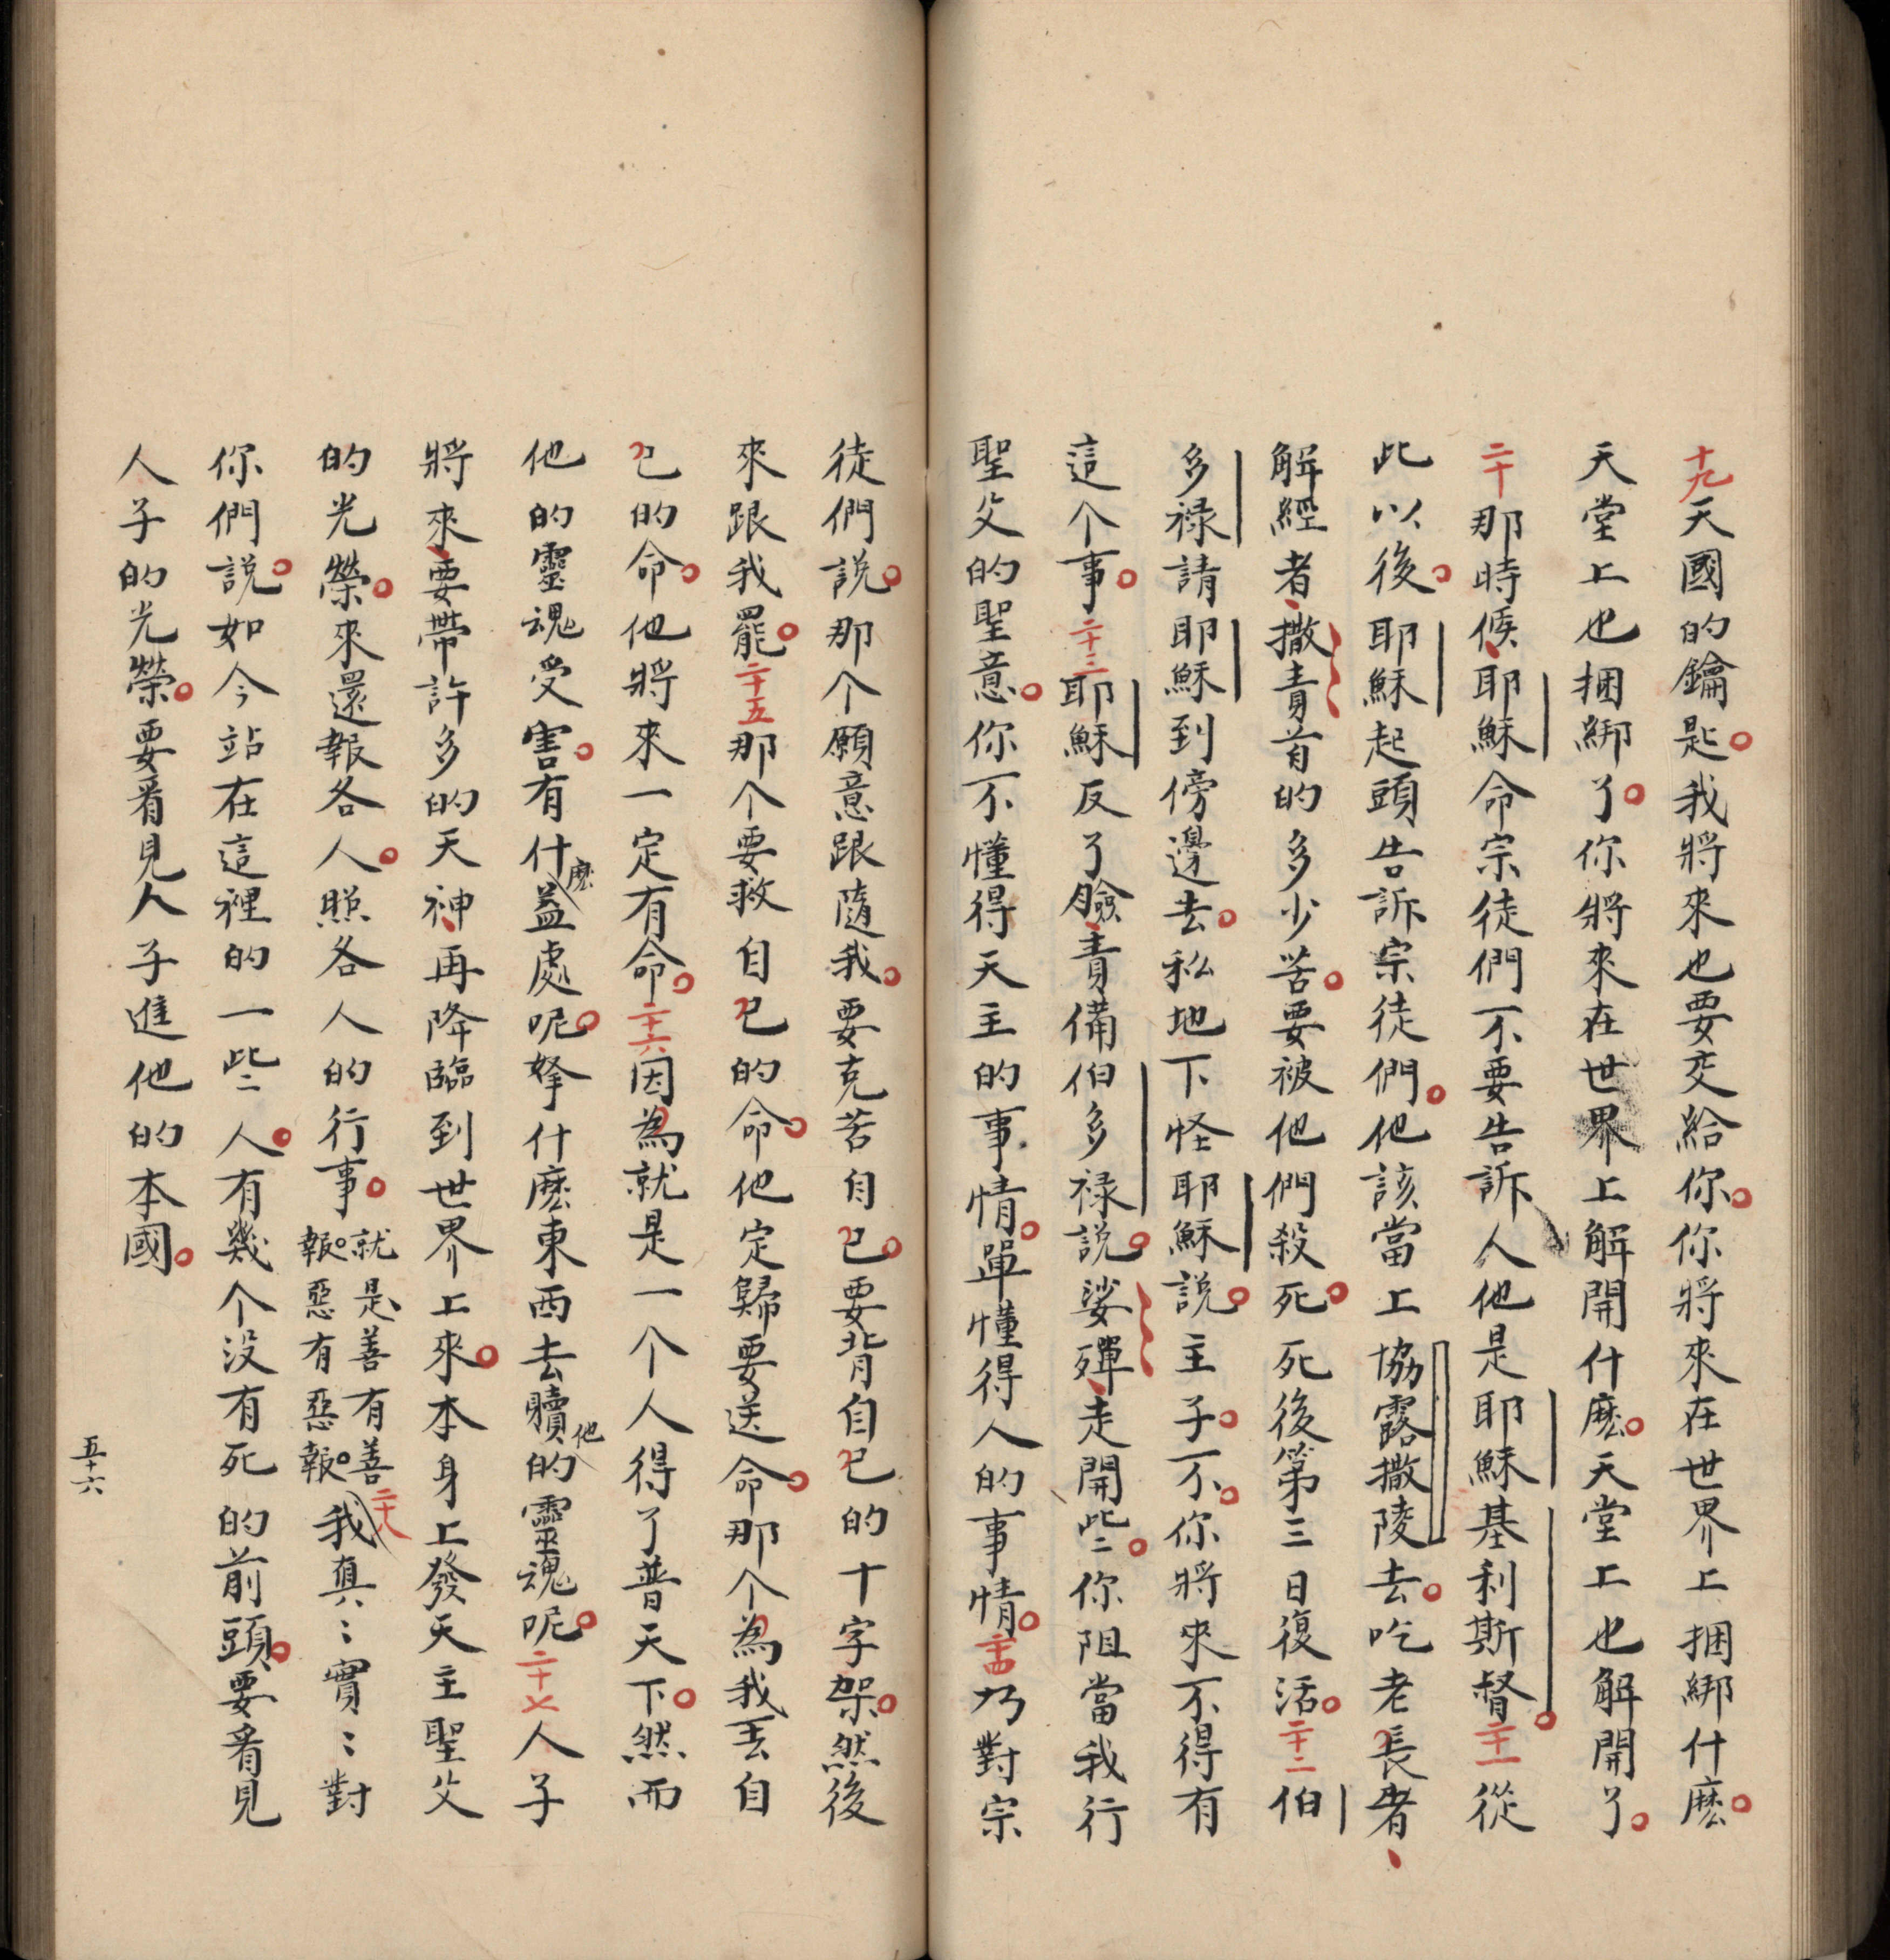 十九天國的鑰匙。我將來也要交給你。你將來在世界上捆綁什麽。
天堂上也捆綁了。你將來在世界上解開什麽。天堂上也解開了。
二十那時候、耶穌命宗徒們不要告訴人他是耶穌基利斯督。二十一從
此以後。耶穌起頭告訴宗徒們。他該當上協露撒陵去。吃老長者、
解經者、撒責首的多少苦。要被他們殺死。死後第三日復活。二十二伯
多祿請耶穌到傍邊去。私地下怪耶穌說。主子。不。你將來不得有
這个事。二十三耶穌反了臉、責備伯多祿說。娑殫、走開些〻。你阻當我行
聖父的聖意。你不懂得天主的事情。單懂得人的事情。二十四乃對宗
徒們說。那个願意跟隨我。要克苦自己。要背自己的十字架。然後
來跟我罷。二十五那个要救自己的命。他定歸要送命。那个為我丟自
己的命。他將來一定有命。二十六因為就是一个人得了普天下。然而
他的靈魂受害。有什麽益處呢。拏什麽東西去贖他的靈魂呢。二十七人子
將來、要帶許多的天神、再降臨到世界上來。本身上發天主聖父
的光榮。來還報各人。照各人的行事。就是、善有善報。惡有惡報。二十八我真〻實〻對
你們說。如今站在這裡的一些〻人。有幾个没有死的前頭。要看見
人子的光榮。要看見人子進他的本國。
五十六